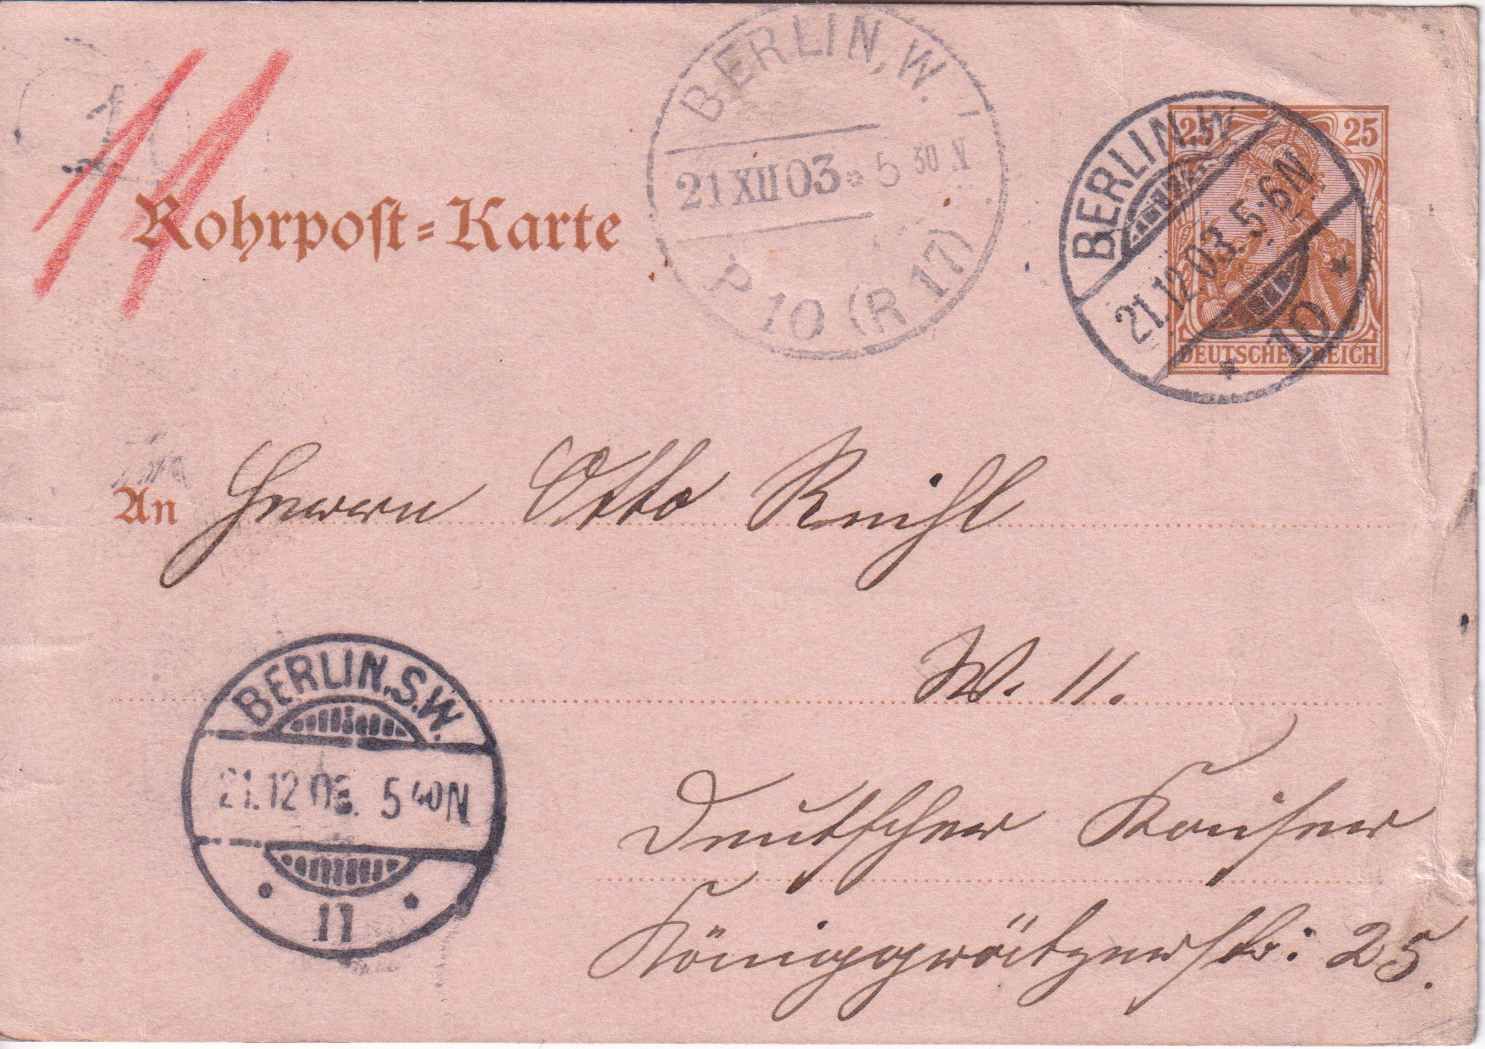 BERLIN, W.
21 XII 03 * 5 30 N
P 10 (R 17)
25 25
DEUTSCHES REICH
BERLIN, W.
21.12.03. 5-6N
* 10 *
11
Rohrpost-Karte
An Herrn Otto Reihl
W. 11.
Deutscher Kaiser
Königgrätzerstr: 25.
BERLIN, S.W.
21.12.03. 5 40N
* 11 *